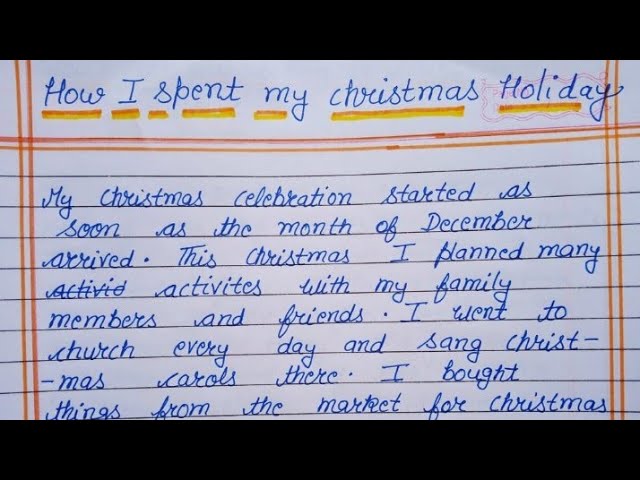 How I spent my christmas Holiday
My christmas celebration started as
soon as the month of December
arrived. This christmas I planned many
activid activites with my family
members and friends. I went to
church every day and sang christ-
-mas carols there. I bought
things from the market for christmas